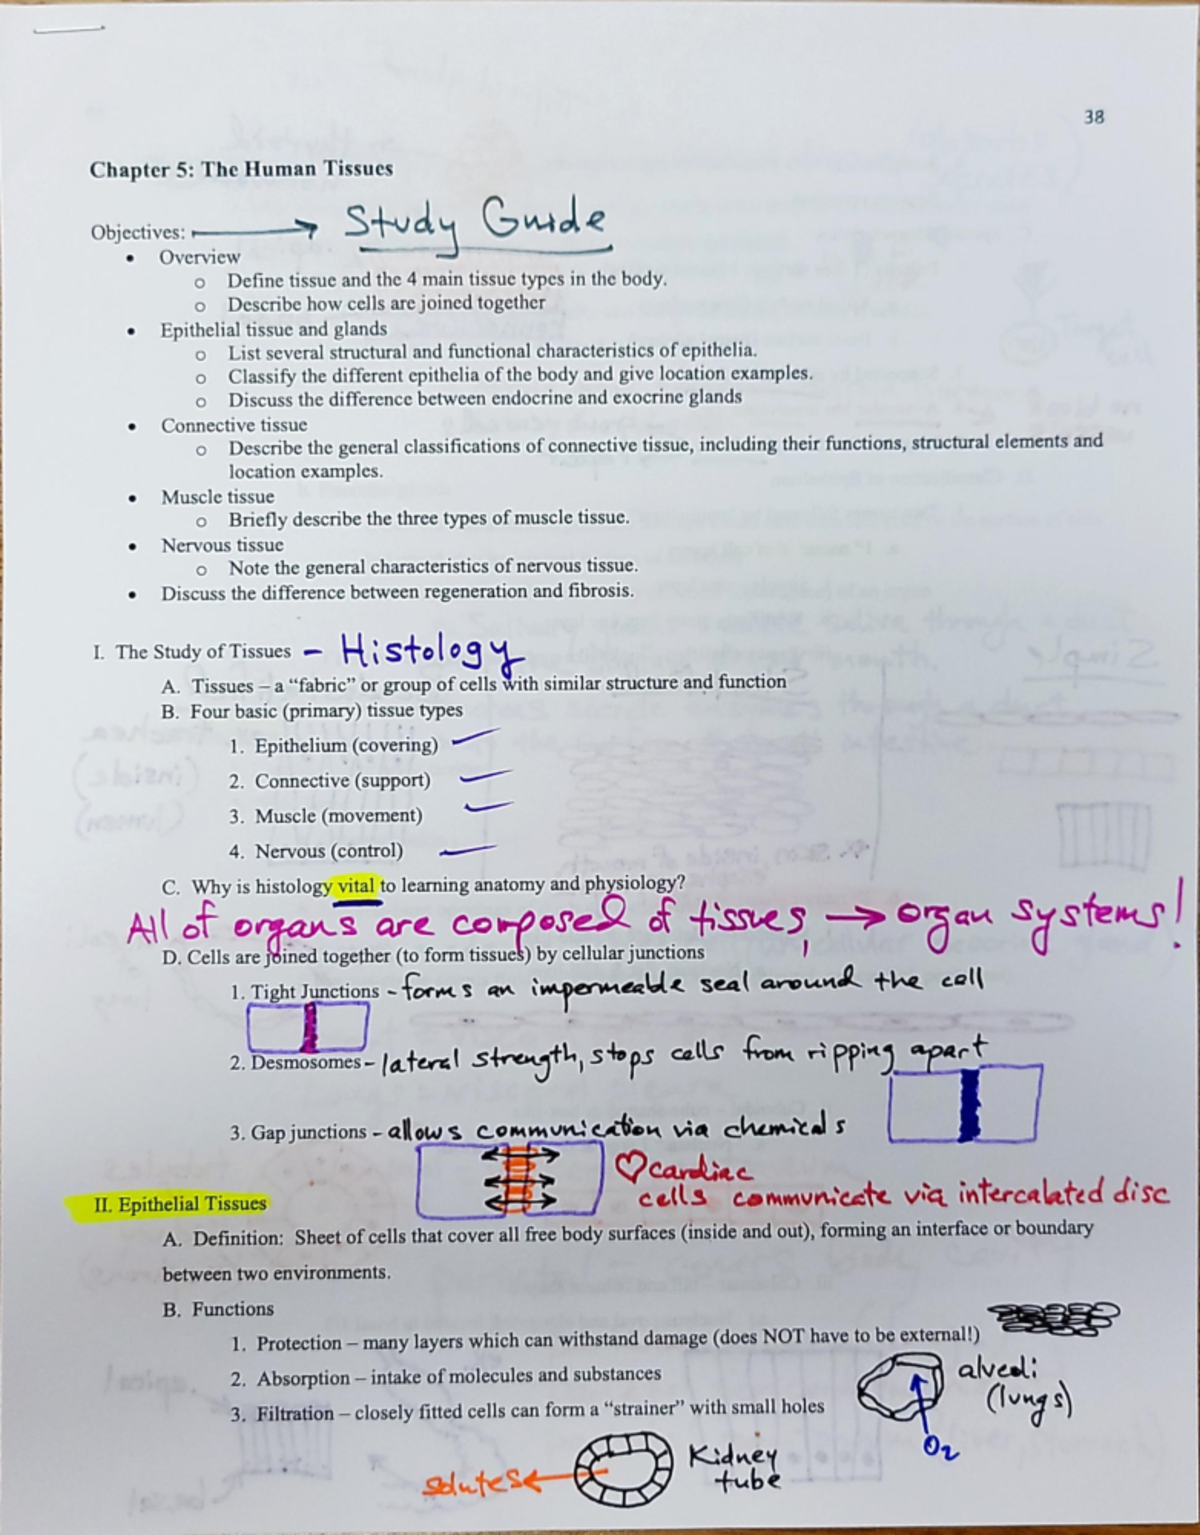 38
Chapter 5: The Human Tissues
Objectives: → Study Guide
• Overview
o Define tissue and the 4 main tissue types in the body.
o Describe how cells are joined together
• Epithelial tissue and glands
o List several structural and functional characteristics of epithelia.
o Classify the different epithelia of the body and give location examples.
o Discuss the difference between endocrine and exocrine glands
• Connective tissue
o Describe the general classifications of connective tissue, including their functions, structural elements and
location examples.
• Muscle tissue
o Briefly describe the three types of muscle tissue.
• Nervous tissue
o Note the general characteristics of nervous tissue.
• Discuss the difference between regeneration and fibrosis.
I. The Study of Tissues – Histology
A. Tissues – a “fabric” or group of cells with similar structure and function
B. Four basic (primary) tissue types
1. Epithelium (covering)
2. Connective (support)
3. Muscle (movement)
4. Nervous (control)
C. Why is histology vital to learning anatomy and physiology?
All of organs are composed of tissues, → organ systems!
D. Cells are joined together (to form tissues) by cellular junctions
1. Tight Junctions - forms an impermeable seal around the cell
2. Desmosomes - lateral strength, stops cells from ripping apart
3. Gap junctions - allows communication via chemicals
♡ cardiac
cells communicate via intercalated disc
II. Epithelial Tissues
A. Definition: Sheet of cells that cover all free body surfaces (inside and out), forming an interface or boundary
between two environments.
B. Functions
1. Protection – many layers which can withstand damage (does NOT have to be external!)
2. Absorption – intake of molecules and substances
alveoli
(lungs)
3. Filtration – closely fitted cells can form a “strainer” with small holes
O2
Kidney
tube
solutes ←